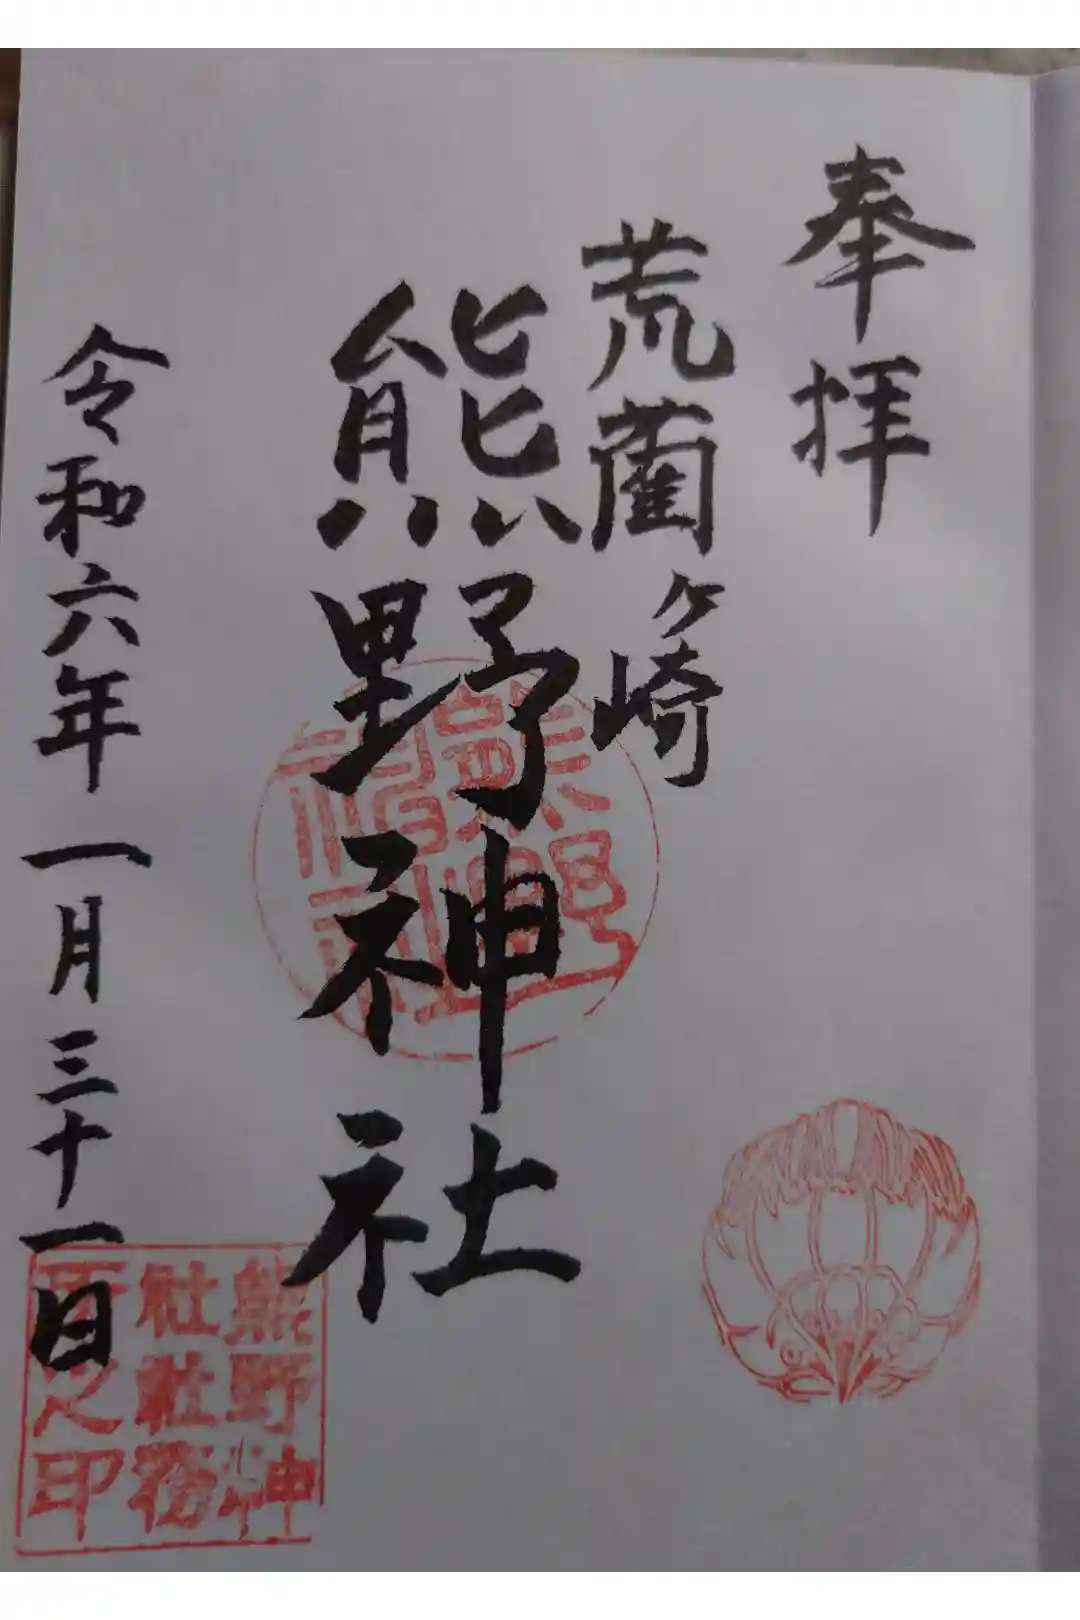 奉拝
荒藺ヶ崎
熊野神社
令和六年一月三十一日
熊野神
社社務
所之印
熊野
神社